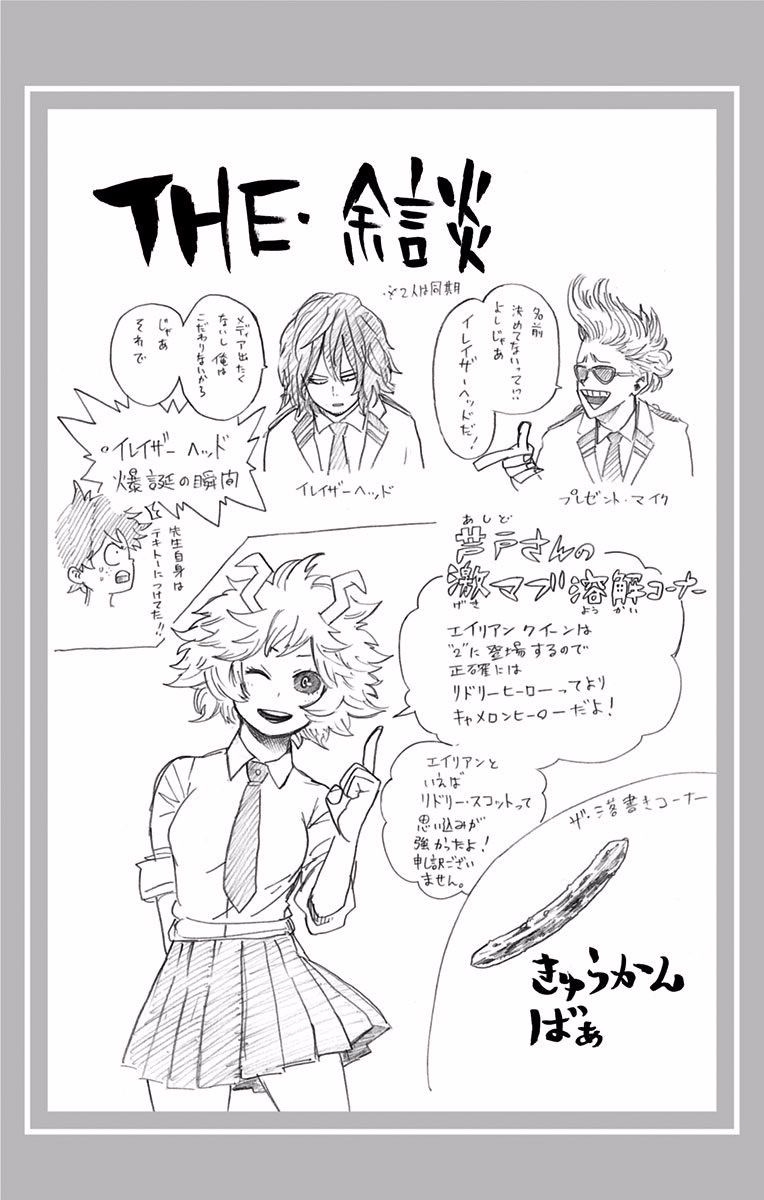 THE・余談
※2人は同期
名前
決めてないって!?
よしじゃあ
イレイザーヘッドだ!
プレゼント・マイク
メディア出たく
ないし俺は
こだわりないから
じゃあ
それで
イレイザーヘッド
◦イレイザーヘッド
爆誕の瞬間
先生自身は
テキトーにつけてた!!
あしど
芦戸さんの
激マブ溶解コーナー
げき
ようかい
エイリアンクイーンは
"2"に登場するので
正確には
リドリーヒーローってより
キャメロンヒーローだよ!
エイリアンと
いえば
リドリー・スコットって
思い込みが
強かったよ!
申し訳ござい
ません。
ザ・落書きコーナー
きゅうかん
ばぁ